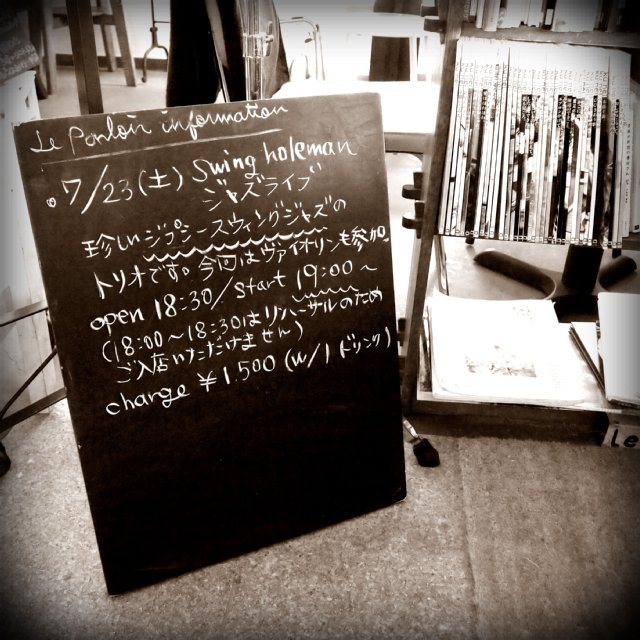 Le Ponloir information
。7/23(土) Swing holeman
ジャズライブ
珍しいジプシースウィングジャズの
トリオです。今回はヴァイオリンも参加。
open 18:30/start 19:00~
(18:00~18:30はリハーサルのため
ご入店いただけません)
charge ¥1,500 (w/1ドリンク)
le